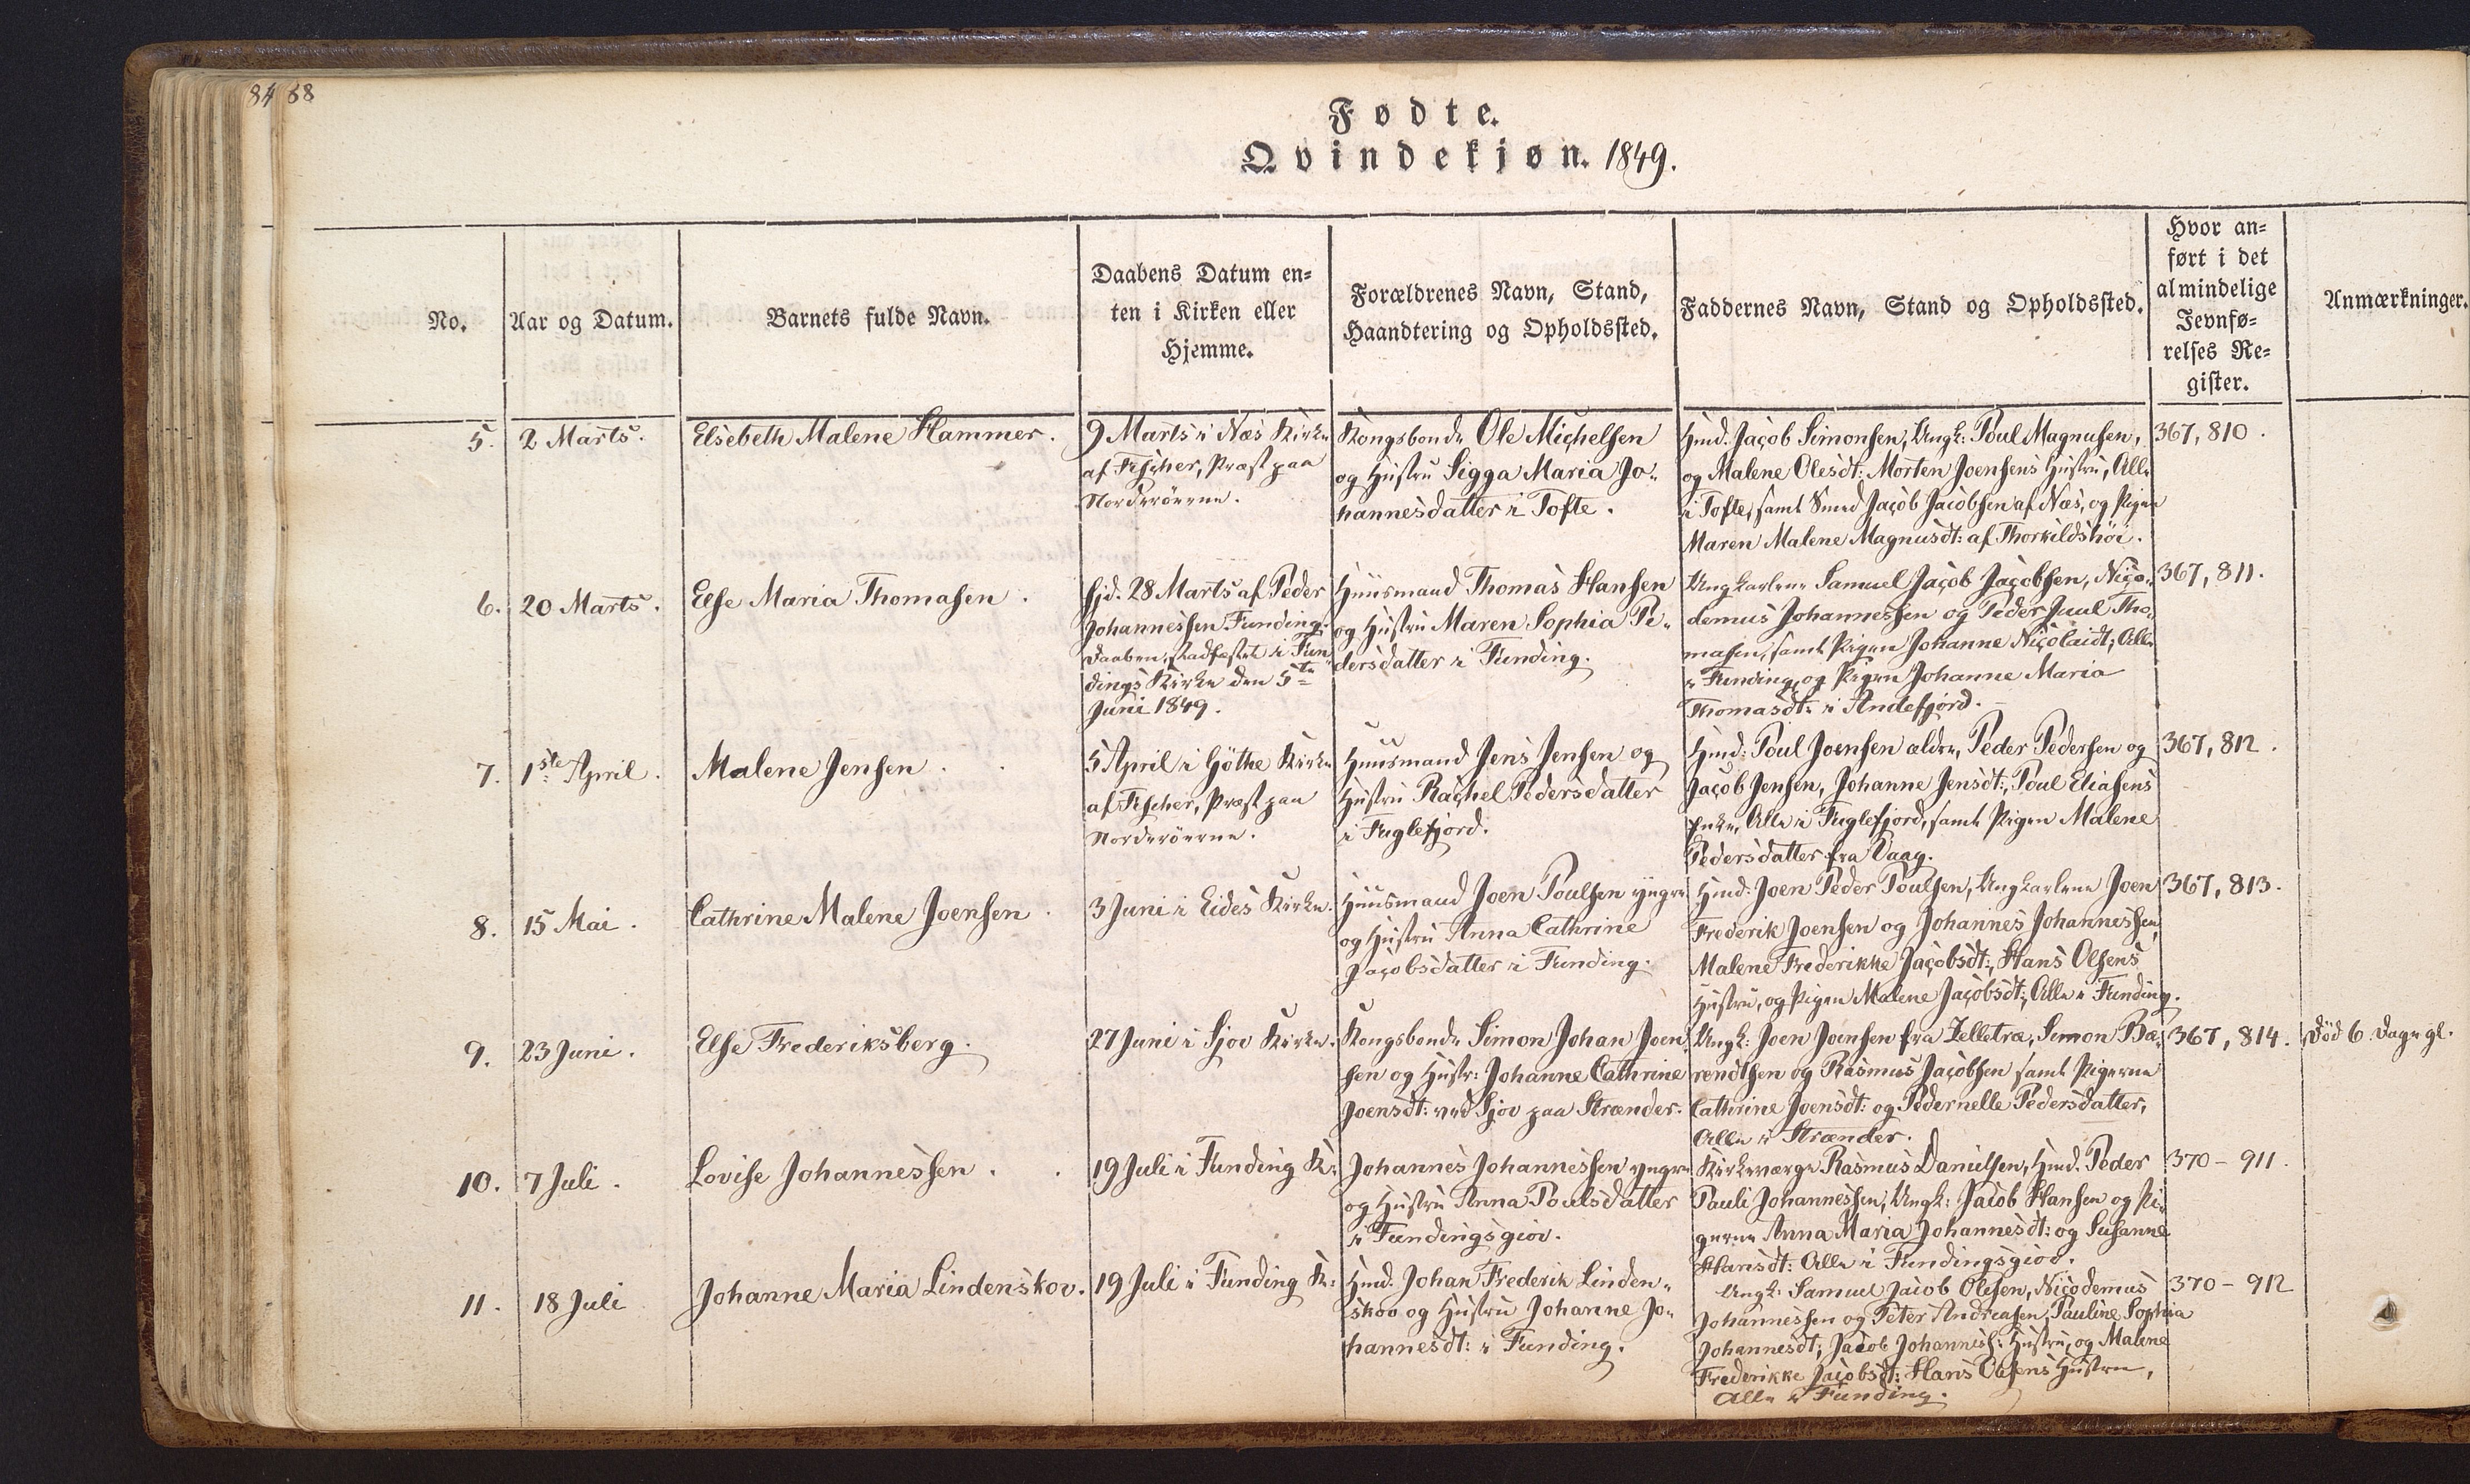 84 68
Fødte.
Qvindekjøn. 1849.
No.
Aar og Datum.
Barnets fulde Navn.
Daabens Datum en=
ten i Kirken eller
Hjemme.
Forældrenes Navn, Stand,
Haandtering og Opholdssted.
Faddernes Navn, Stand og Opholdssted.
Hvor an=
ført i det
almindelige
Jevnfø=
relses Re=
gister.
Anmærkninger.
5.
2 Marts.
Elsebeth Malene Hammer.
9 Marts i Næs Kirke
af Fischer, Præst paa
Norderöerne.
Kongsbonde Ole Michelsen
og Hustru Sigga Maria Jo-
hannesdatter i Tofte.
Hmd. Jacob Simonsen, Ungk: Poul Magnusen,
og Malene Olesdt: Morten Joensens Hustru, Alle
i Tofte, samt Smed Jacob Jacobsen af Næs, og Pigen
Maren Malene Magnusdt: af Thorkildshöi.
367, 810.
6.
20 Marts.
Else Maria Thomasen.
Hjd. 28 Marts af Peder
Johannessen Funding.
Daaben stadfæstet i Fun
dings Kirke den 5te
Juni 1849.
Huusmand Thomas Hansen
og Hustru Maren Sophia Pe-
dersdatter i Funding.
Ungkarlene Samuel Jacob Jacobsen, Nico-
demus Johannessen og Peder Juul Tho-
masen, samt Pigen Johanne Nicolaidt; Alle
i Funding, og Pigen Johanne Maria
Thomasdt: i Andefjord.
367, 811.
7.
1ste April.
Malene Jensen.
5 April i Göthe Kirke
af Fischer, Præst paa
Norderöerne.
Huusmand Jens Jensen og
Hustru Rachel Pedersdatter
i Fuglefjord.
Hmd: Poul Joensen ældre, Peder Pedersen og
Jacob Jensen, Johanne Jensdt:, Poul Eliasens
Enke, Alle i Fuglefjord, samt Pigen Malene
Pedersdatter fra Vaag.
367, 812.
8.
15 Mai.
Cathrine Malene Joensen
3 Juni i Eides Kirke.
Huusmand Joen Poulsen yngre
og Hustru Anna Cathrine
Jacobsdatter i Funding.
Hmd: Joen Peder Poulsen, Ungkarlene Joen
Frederik Joensen og Johannes Johannessen,
Malene Frederikke Jacobsdt:, Hans Olsens
Hustru, og Pigen Malene Jacobsdt; Alle i Funding.
367, 813.
9.
23 Juni.
Else Frederiksberg.
27 Juni i Sjov Kirke.
Kongsbonde Simon Johan Joen-
sen og Hustr: Johanne Cathrine
Joensdt: ved Sjov paa Strænder.
Ungk: Joen Joensen fra Zelletræ, Simon Bæ-
rendtsen og Rasmus Jacobsen samt Pigerne
Cathrine Joensdt: og Pedernelle Pedersdatter,
Alle i Strænder.
367, 814.
Död 6 Dage gl.
10.
7 Juli.
Lovise Johannessen.
19 Juli i Funding K:
Johannes Johannessen yngre
og Hustru Anna Poulsdatter
i Fundingsgiov.
Kirkeværge Rasmus Danielsen, Hmd. Peder
Pauli Johannessen, Ungk: Jacob Hansen og Pi-
gerne Anna Maria Johannesdt: og Susanne
Hansdt: Alle i Fundingsgiov.
370 - 911.
11.
18 Juli
Johanne Maria Lindenskov.
19 Juli i Funding K:
Hmd. Johan Frederik Linden-
skov og Hustru Johanne Jo-
hannesdt: i Funding.
Ungk: Samuel Jacob Olesen, Nicodemus
Johannessen og Peter Andreasen, Pauline Sophia
Johannesdt; Jacob Johanness: Hustru, og Malene
Frederikke Jacobsdt: Hans Olsens Hustru,
Alle i Funding.
370 - 912